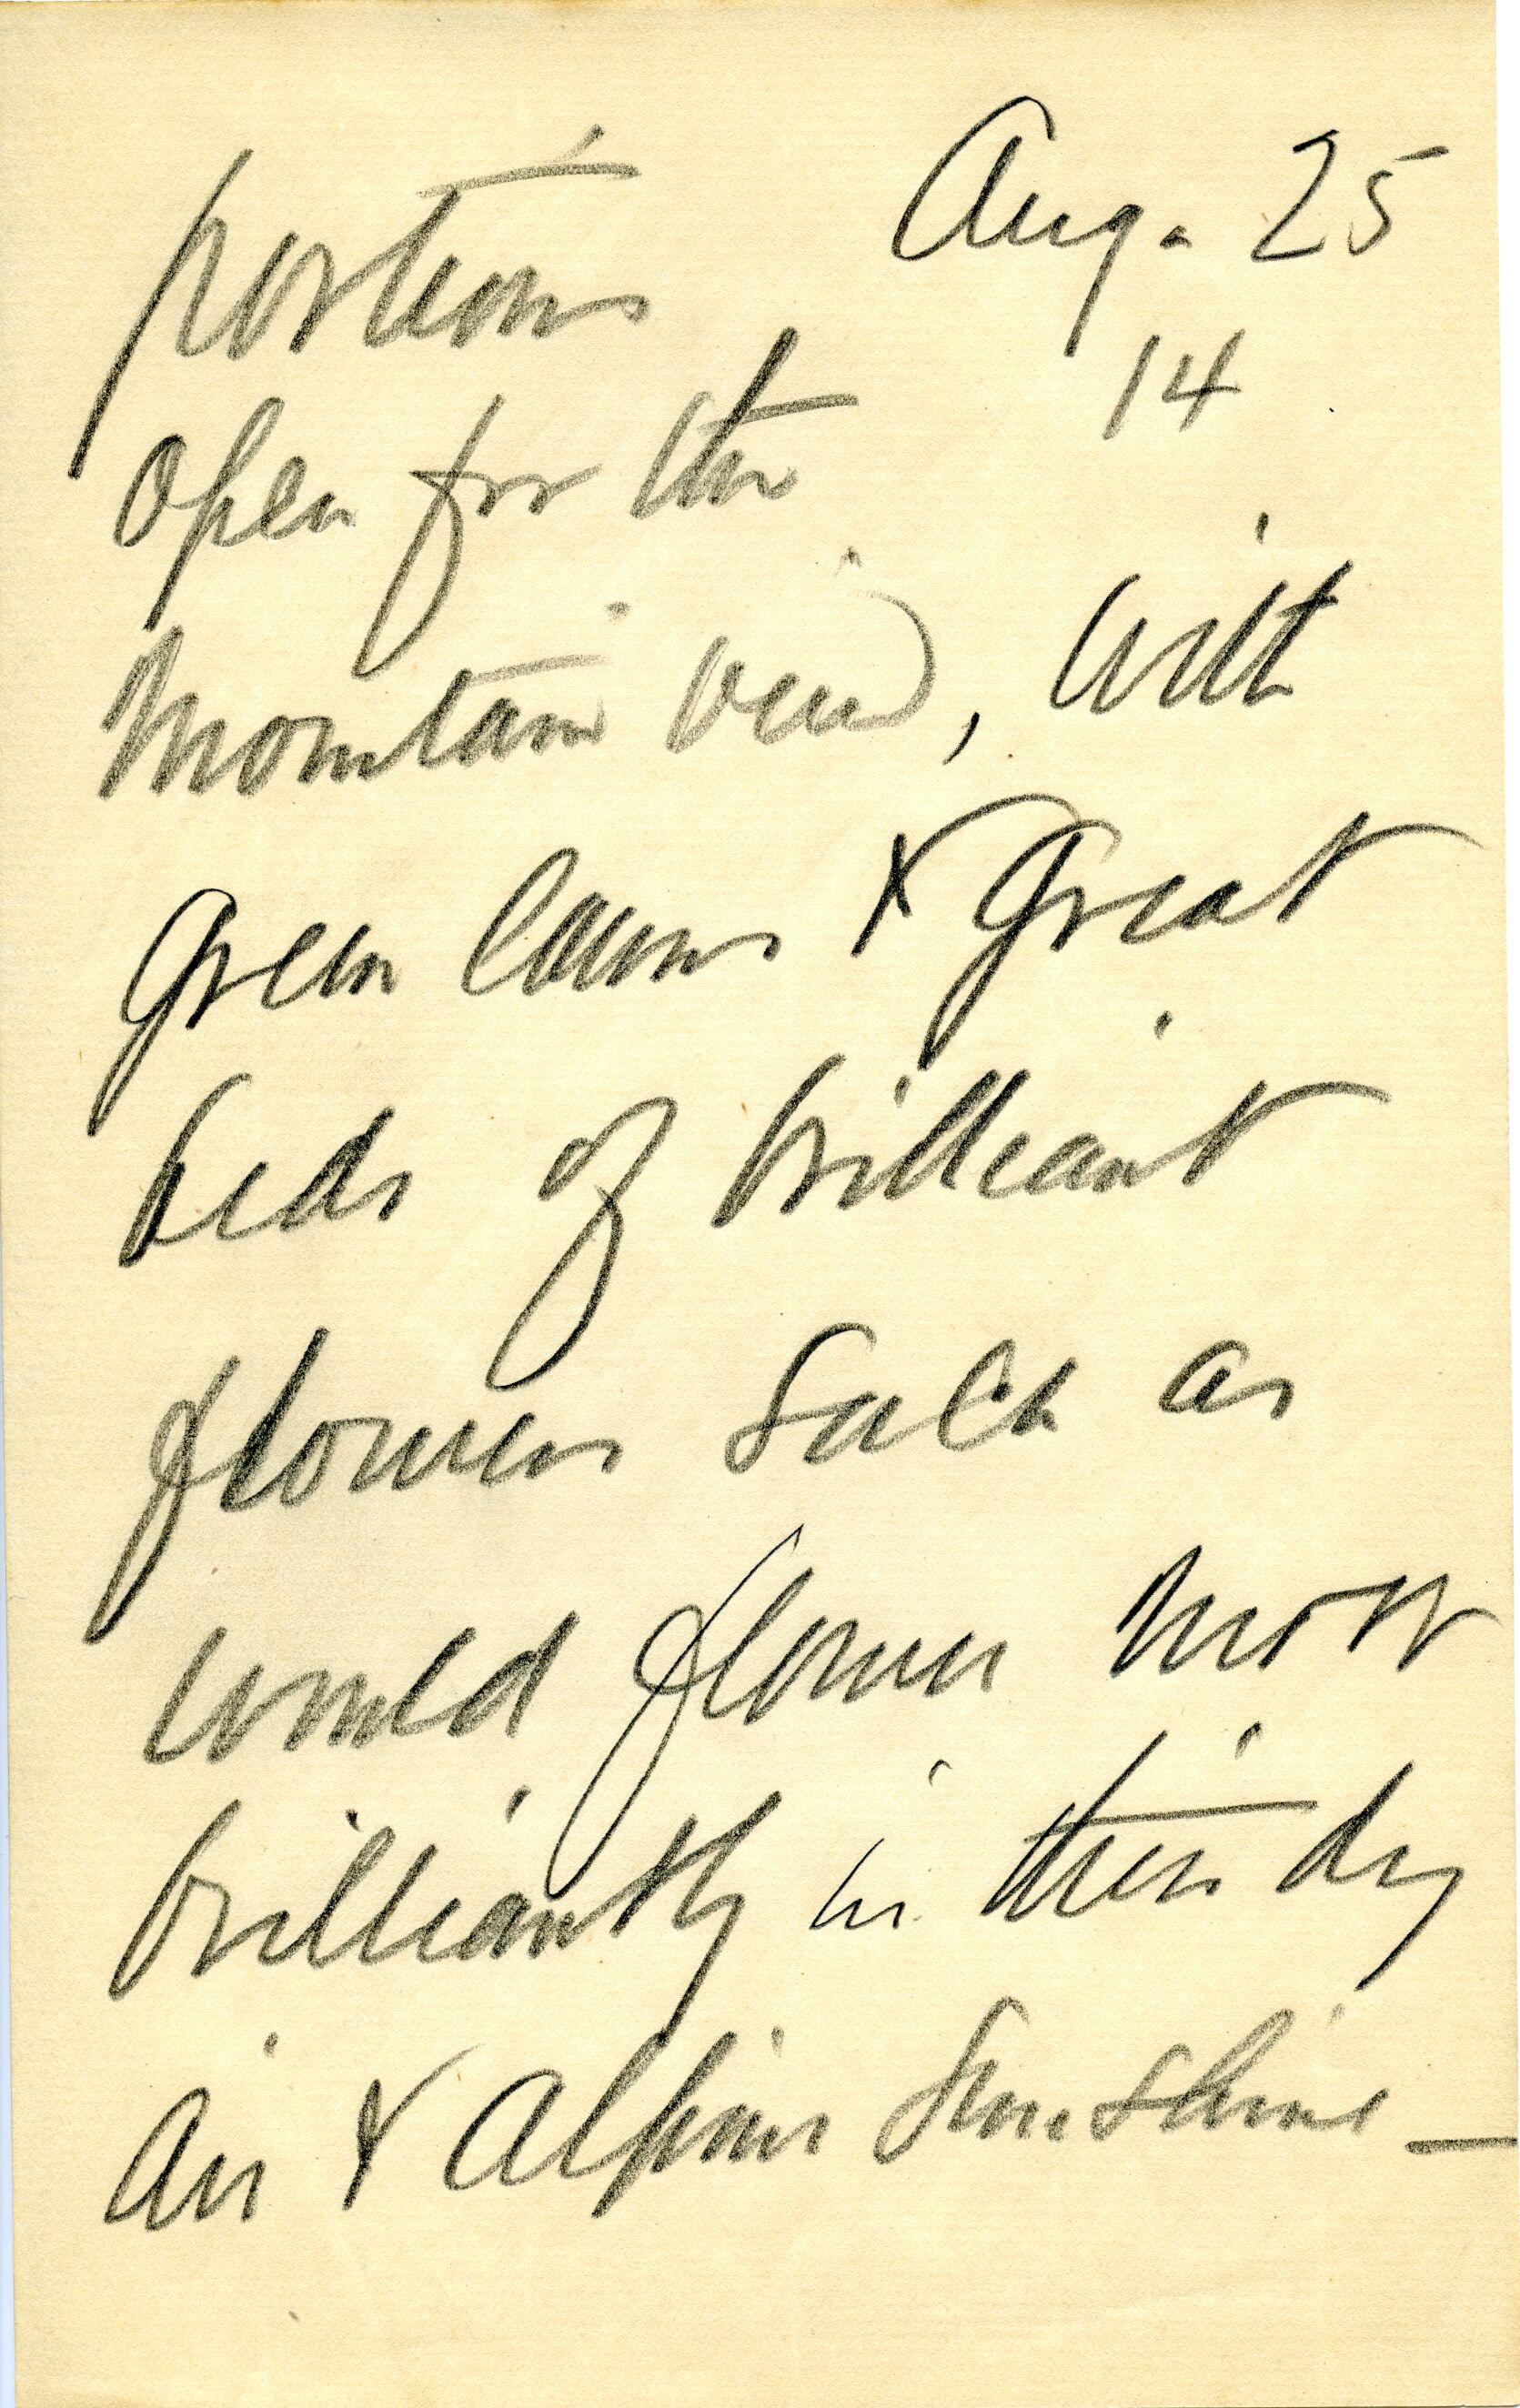 Aug. 25
14
portions
open for the
mountain view, with
green lawns & great
beds of brilliant
flowers such as
would flower most
brilliantly in their dry
air & Alpine sunshine —